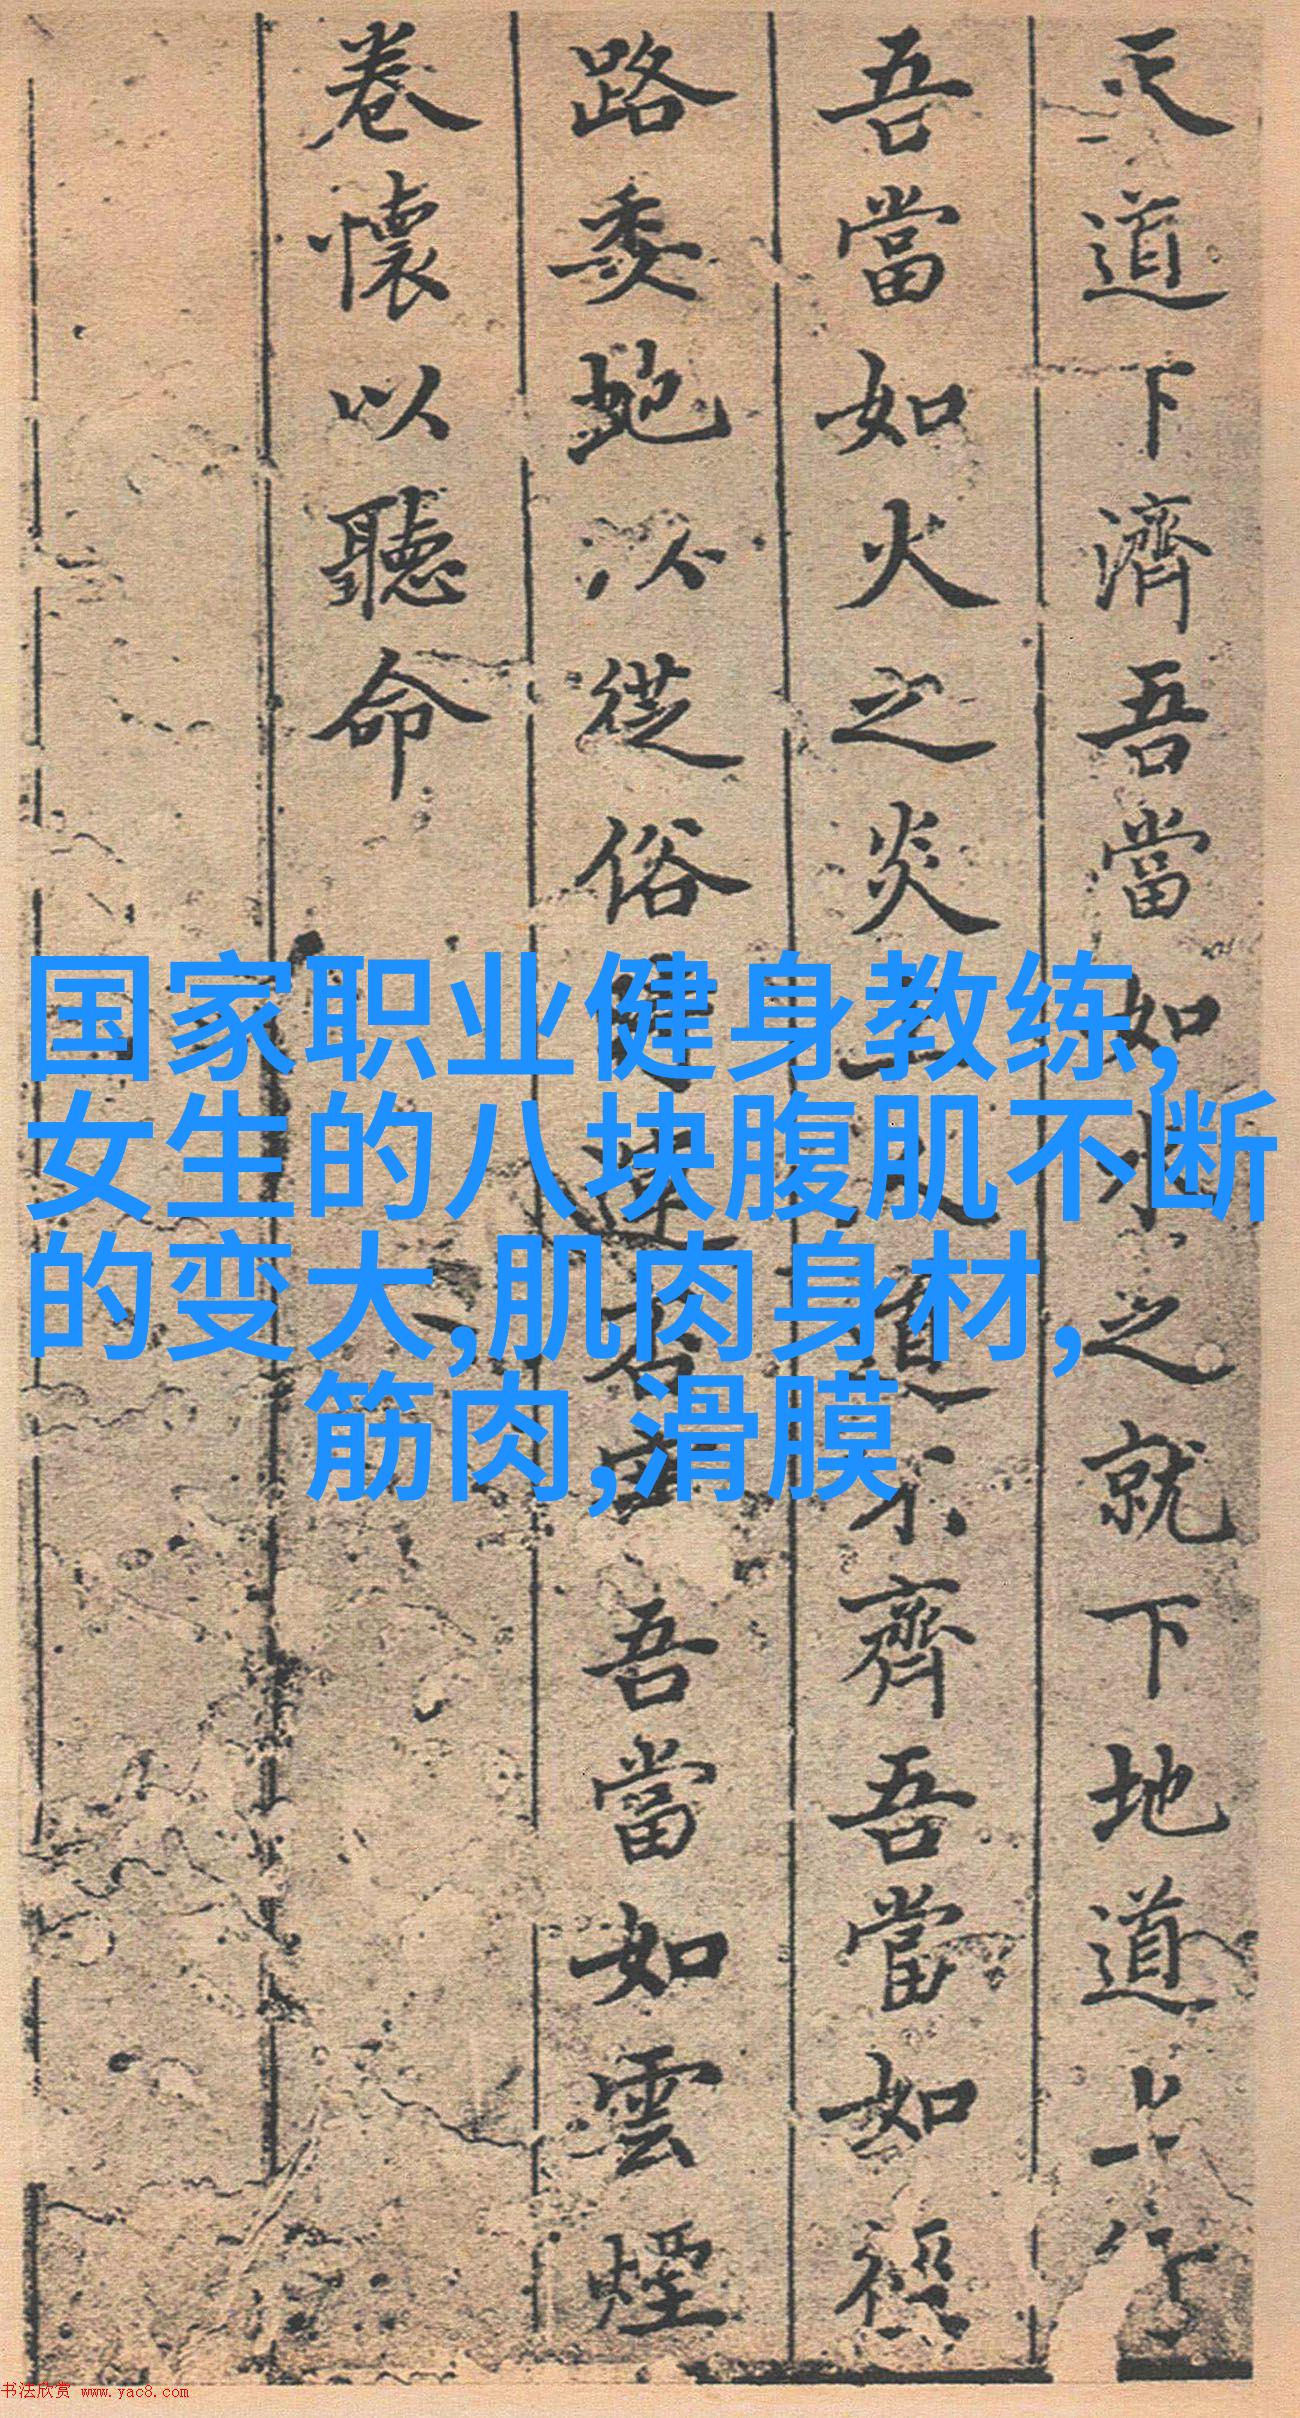 天道下濟吾當如水之就下地道上行
吾當如火之炎上人道不齊吾當如
路委虵以從俗吾當如雲煙
卷懷以聽命
国家职业健身教练,
女生的八块腹肌不断
的变大,肌肉身材,
筋肉,滑膜
书法欣赏 www.yac8.com